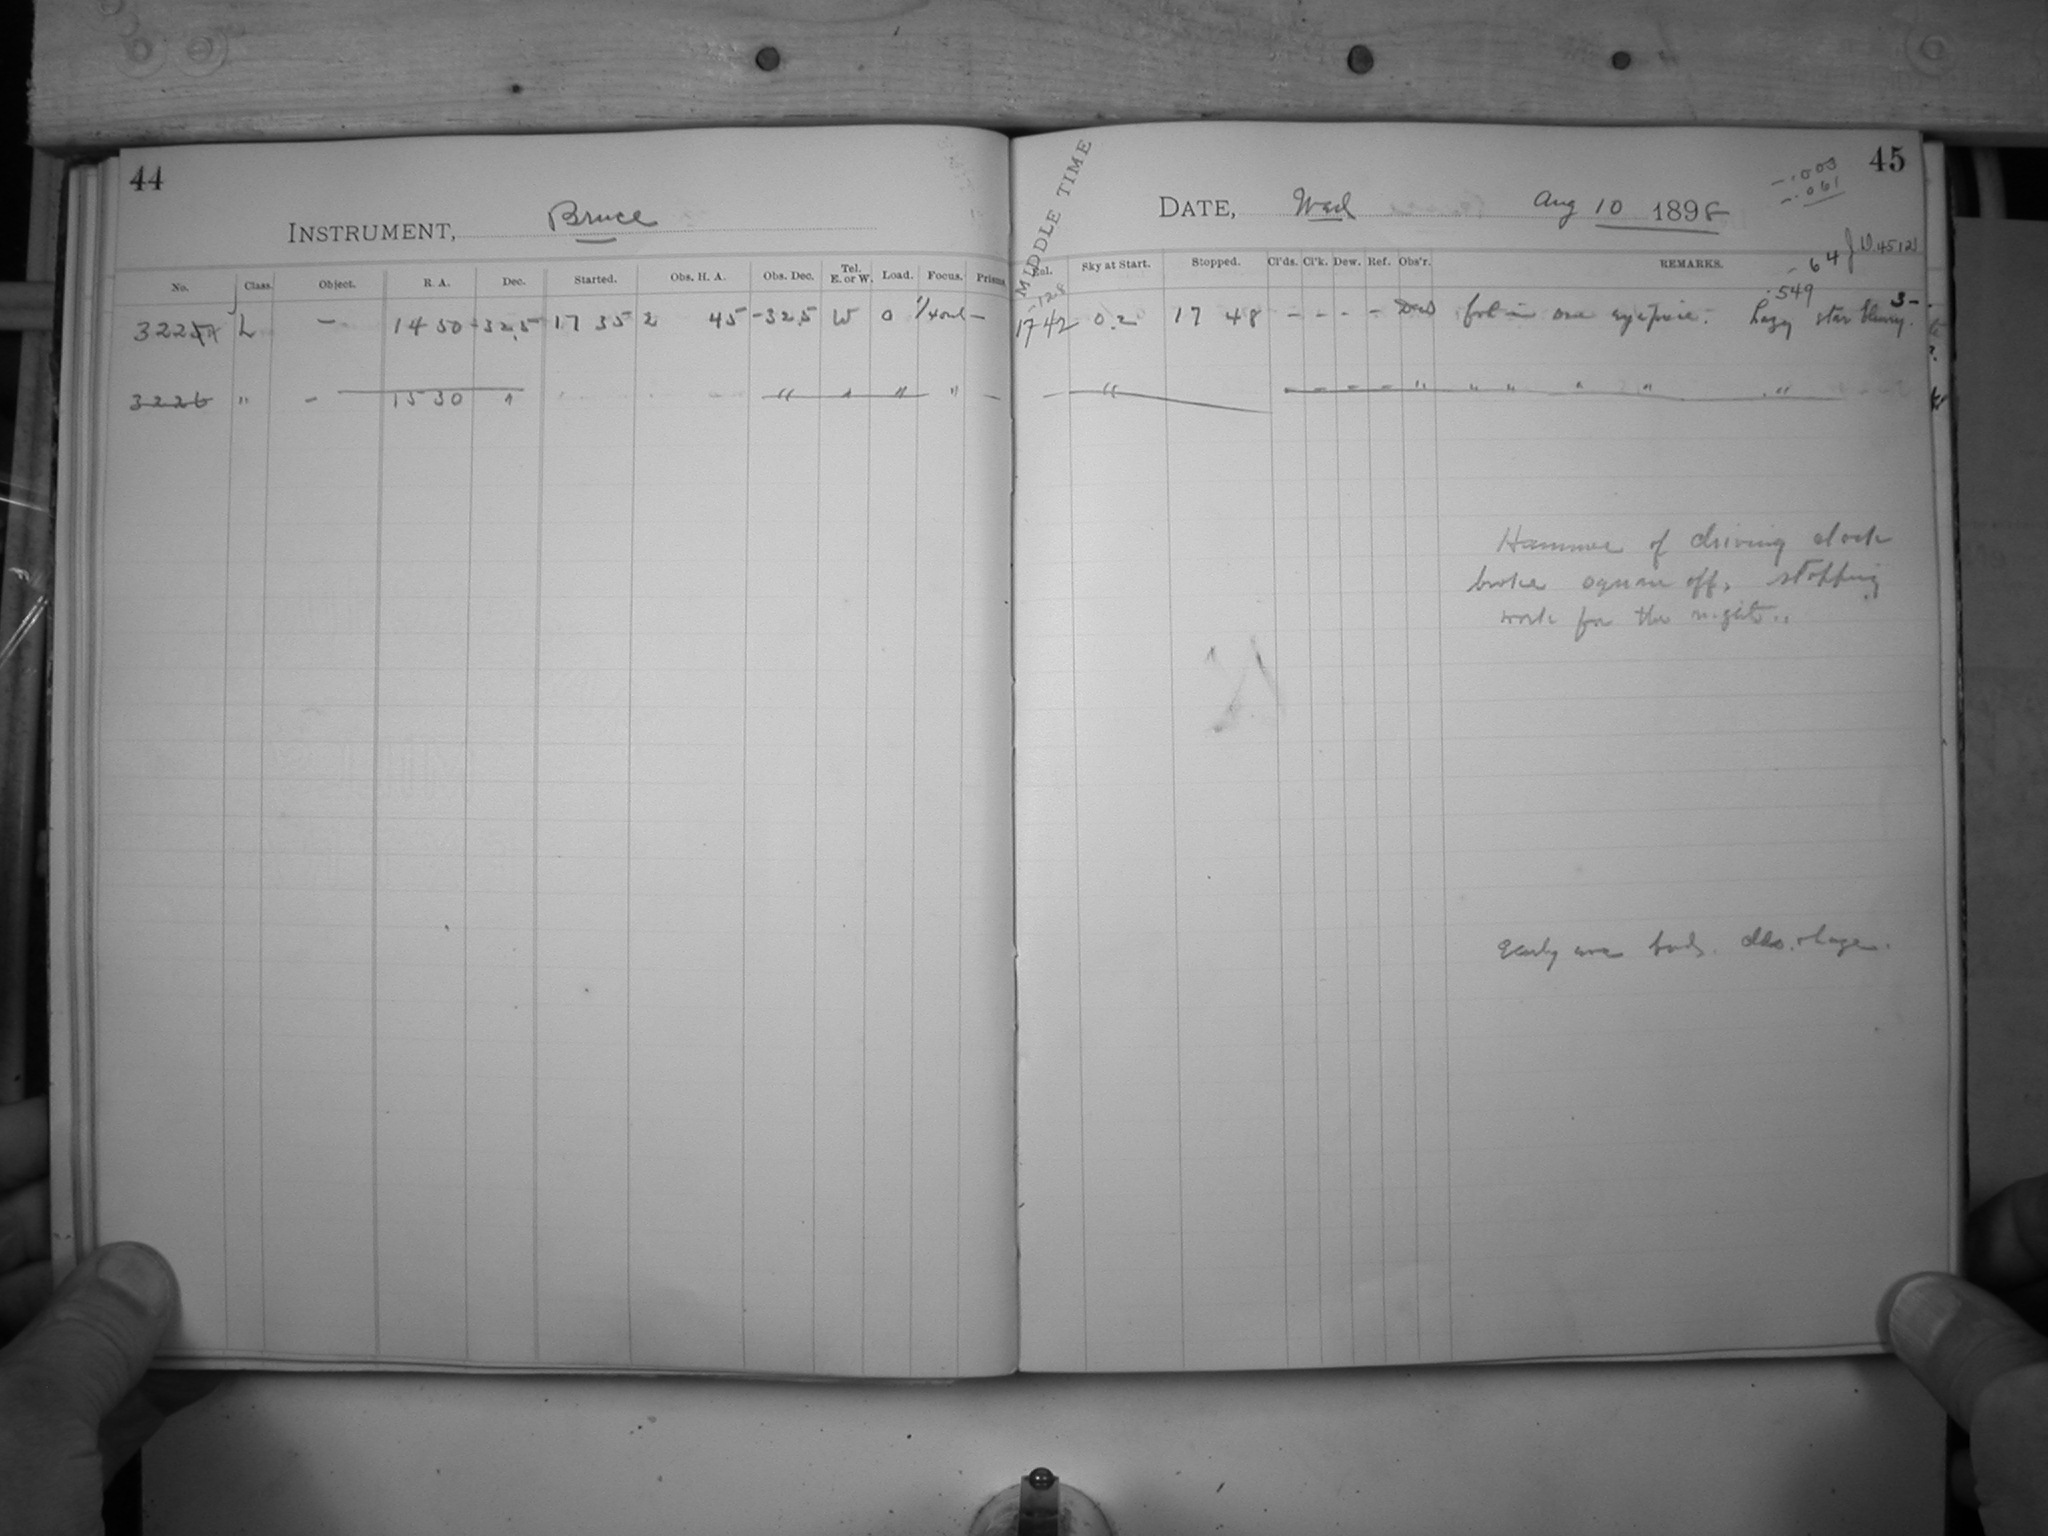 44
INSTRUMENT, Bruce
No. Class. Object. R. A. Dec. Started. Obs. H. A. Obs. Dec. Tel. E. or W. Load. Focus. Prisms
3225 L – 14 50 -32.5 17 35 2 45 -32.5 W 0 –
3226 " – 15 30 " " " " " –
45
MIDDLE TIME
DATE, Wed Aug 10 1898
-.003
-.061
Sky at Start. Stopped. Cl'ds. Cl'k. Dew. Ref. Obs'r. REMARKS.
-128
-64
.549
1742 0.2 17 48 – – – – fol in one eyepiece. Hazy star blurry.
– " – – – – " " " " " "
Hammer of driving clock
broke square off, stopping
work for the night.
Early eve